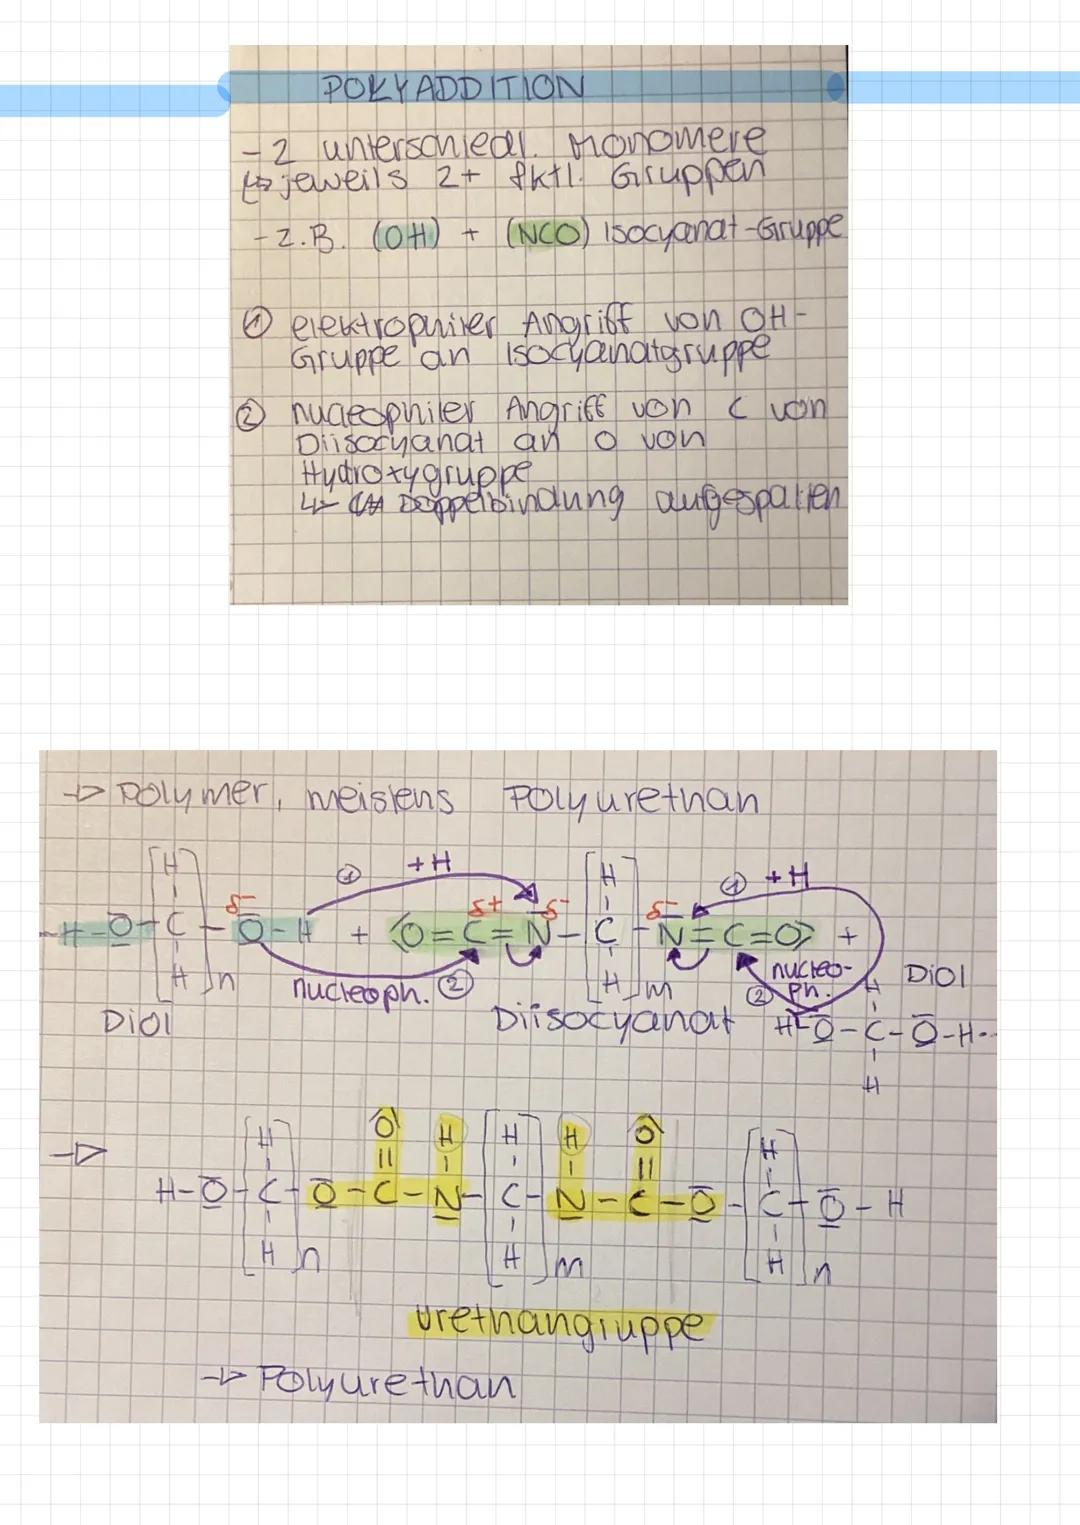 POLYADDITION
- 2 unterschiedl. Monomere
↳ jeweils 2+ fktl. Gruppen
- z.B. (OH) + (NCO) Isocyanat-Gruppe
① elektrophiler Angriff von OH-
Gruppe an Isocyanatgruppe
② nucleophiler Angriff von C von
Diisocyanat an O von
Hydroxygruppe
↳ Doppelbindung aufgespalten
→ Polymer, meistens Polyurethan
① +H
① +H
H δ- δ+ δ- H δ-
H-O-C-O-H + ⟨O=C=N-C-N=C=O⟩ +
H n nucleoph. ② H m ② nucleo-
ph. Diol
Diol Diisocyanat H-O-C-O-H
H
H
→ H O H H H O H
H-O-C-O-C-N-C-N-C-O-C-O-H
H n H m H n
Urethangruppe
→ Polyurethan